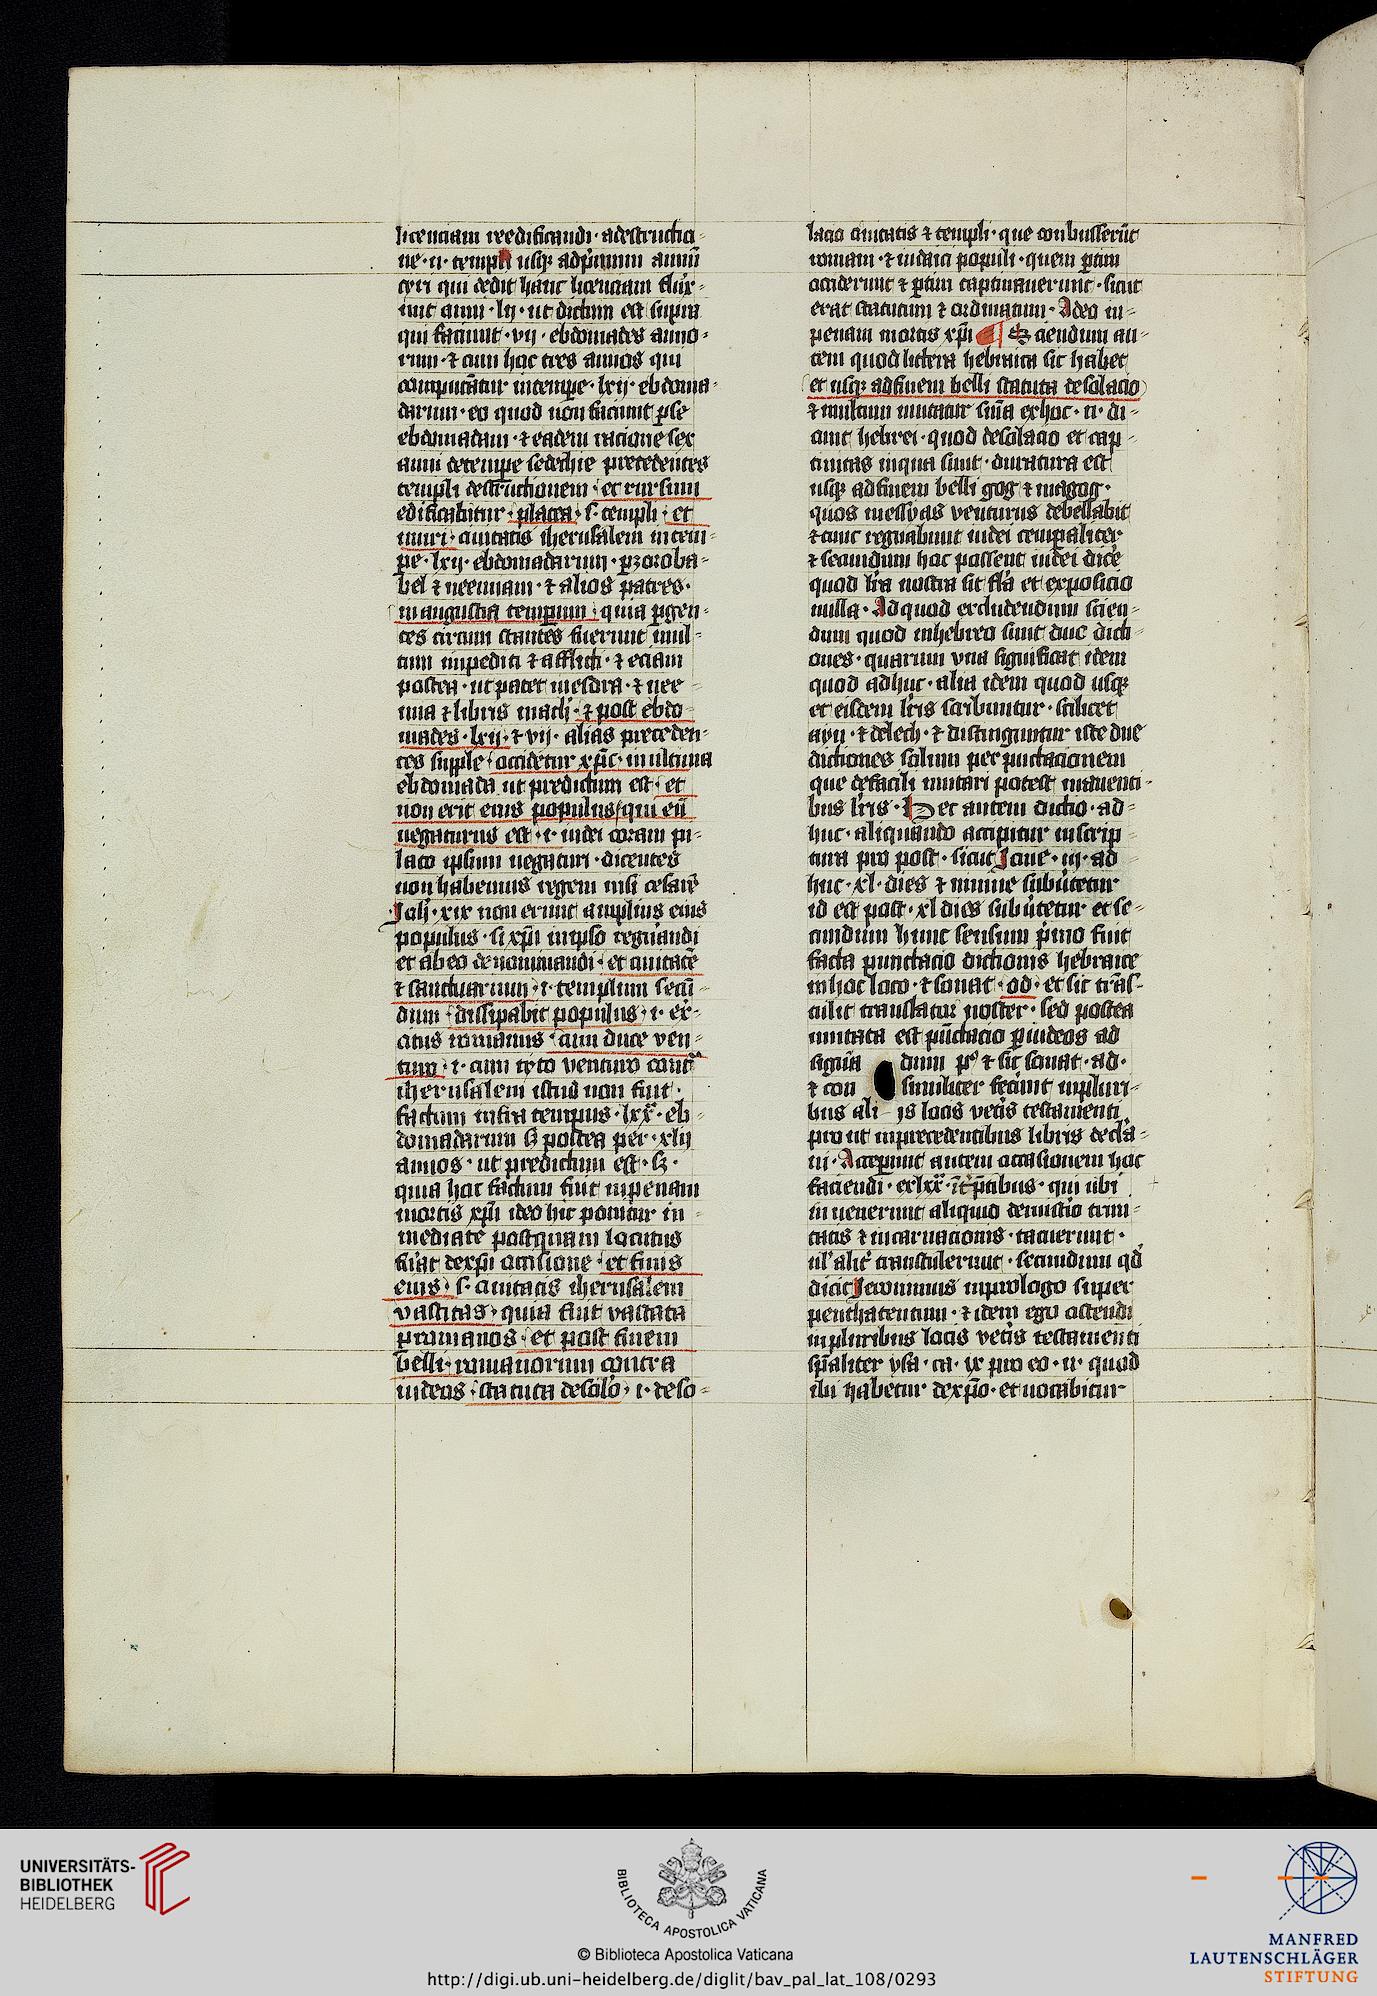 licenciam reedificandi · a destructio-
ne · ii · templi usq; ad p̄mum annū
cyri qui dedit hanc licenciam flux-
unt anni · lii · ut dictum est supra
qui faciunt · vii · ebdomades anno-
rum · ⁊ cum hoc tres annos qui
computātur in tempe · lxii · ebdoma-
darum · eo quod non faciunt p se
ebdomadam · ⁊ eadem racione sex
anni de tempe sedechie precedentes
templi destructionem · et rursum
edificabitur · platea · s · templi · et
muri · ciuitatis iherusalem in tem-
pe · lxii · ebdomadarum · p zoroba-
bel ⁊ neemiam · ⁊ alios patres ·
in angustia temporum · quia p gen-
tes circum stantes fuerunt mul-
tum impediti ⁊ afflicti · ⁊ eciam
postea · ut patet in esdra · ⁊ nee-
mia ⁊ libris mach · ⁊ post ebdo-
mades · lxii · ⁊ vii · alias preceden-
tes supple · occidetur xp̄c · in ultima
ebdomada ut predictum est · et
non erit eius populus qui eū
negaturus est · i · iudei coram pi-
lato ipsum negaturi · dicentes
non habemus regem nisi cesarē
Joh · xix non erunt amplius eius
populus · s i xp̄i in ipso regnandi
et ab eo denominandi · et ciuitatē
⁊ sanctuarium · i · templum secū-
dum · dissipabit populus · i · ex-
citus romanus · cum duce ven-
turo · i · cum tyto venturo cont̄
iherusalem istud non fuit ·
factum infra tempus · lxx · eb-
domadarum s; postea per · xlii
annos · ut predictum est · s; ·
quia hoc factum fuit in penam
mortis xp̄i ideo hic ponitur in-
mediate postquam locutus
fu'at de xp̄i occisione · et finis
eius · s · ciuitatis iherusalem
vastitas · quia fuit vastata
p romanos · et post finem
belli · romanorum contra
iudeos · statuta desolo · i · deso-
lacio ciuitatis ⁊ templi · que conbusserūt
romani · ⁊ iudaici populi · quem p̄tim
occiderunt ⁊ p̄tim captiuauerunt · sicut
erat statutum ⁊ ordinatum · A deo in-
penam mortis xp̄i Sciendum au-
tem quod littera hebraica sic habet
et usq; ad finem belli statuta desolacio
⁊ multum mutatur sn̄ia ex hoc · n · di-
cunt hebrei · quod desolacio et cap-
tiuitas in qua sunt · duratura est
usq; ad finem belli gog ⁊ magog ·
quos messyas venturus debellabit
⁊ tunc regnabunt iudei temporaliter
⁊ secundum hoc possent iudei dicē
quod lr̄a nostra sit fl'a et exposicio
nulla · Ad quod excludendum scien-
dum quod in hebreo sunt due dicti-
ones · quarum vna significat idem
quod adhuc · alia idem quod usq;
et eisdem lr̄is scribuntur · scilicet
ayn · ⁊ delech · ⁊ distinguntur iste due
dictiones solum per punctacionem
que defacili mutari potest manenti-
bus lr̄is · Hec autem dictio · ad-
huc · aliquando accipitur in scrip-
tura pro post · sicut Jone · iii · ad-
huc · xl · dies ⁊ niniue subūtetur
id est post · xl dies subūtetur et se-
cundum hunc sensum p̄mo fuit
facta punctacio dictionis hebraice
in hoc loco · ⁊ sonat · od · et sic trās-
tulit translator noster · sed postea
mutata est pūctacio p iudeos ad
signā dum p' ⁊ sic sonat · ad ·
⁊ con similiter fecunt in pluri-
bus ali is locis vet'is testamenti
pro ut in precedentibus libris decla-
ui · Acceperunt autem occasionem hoc
faciendi · ex lxx · īt̄p̄tibus · qui ubi
in uenerunt aliquid de misterio trini-
tatis ⁊ incarnacionis · tacuerunt ·
ul' alit' transtulerunt · secundum qd'
dicit Jeronimus in prologo super
penthateucum · ⁊ idem ego ostendi
in pluribus locis vet'is testamenti
sp̄aliter ysa · ca · ix pro eo · n · quod
ibi habetur de xp̄o · et uocabitur
UNIVERSITÄTS-
BIBLIOTHEK
HEIDELBERG
BIBLIOTECA APOSTOLICA VATICANA
© Biblioteca Apostolica Vaticana
http://digi.ub.uni-heidelberg.de/diglit/bav_pal_lat_108/0293
MANFRED
LAUTENSCHLÄGER
STIFTUNG